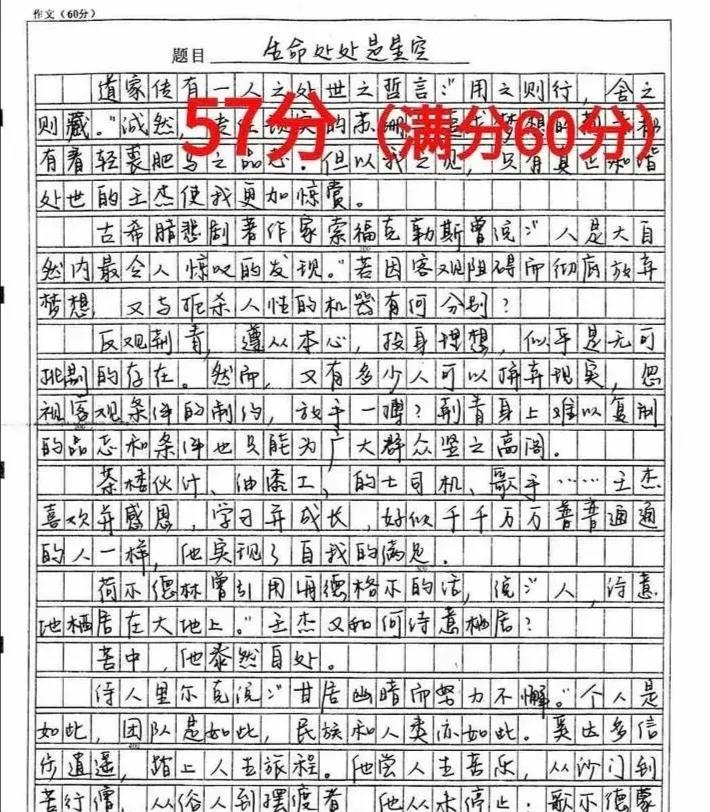 作文（60分）
题目 生命处处是星空
道家传有一人之处世之哲言：“用之则行，舍之
则藏。”诚然，
57分（满分60分）
有着轻裘肥马之品志。但以我之见，只有真正和谐
处世的王杰使我更加惊赏。
古希腊悲剧著作家索福克勒斯曾说：“人是大自
然内最令人惊叹的发现。”若因客观阻碍而彻底放弃
梦想，又与扼杀人性的机器有何分别？
反观荆青，遵从本心，投身理想，似乎是无可
挑剔的存在。然而，又有多少人可以摒弃现实，忽
视客观条件的制约，放手一搏？荆青身上难以复制
的品志和条件也只能为广大群众竖之高阁。
茶楼伙计、油漆工、的士司机、歌手……王杰
喜欢并感恩，学习并成长，好似千千万万普普通通
的人一样，他实现了自我的满足。
荷尔德林曾引用海德格尔的话，说：“人，诗意
地栖居在大地上。”王杰又如何诗意栖居？
苦中，他泰然自处。
诗人里尔克说：“甘居幽暗而努力不懈。”个人是
如此，团队是如此，民族和人类亦如此。奚达多信
步逍遥，踏上人生旅程。他尝人生苦乐，从沙门到
苦行僧，从俗人到摆渡者，他从未停止。歌尔德蒙